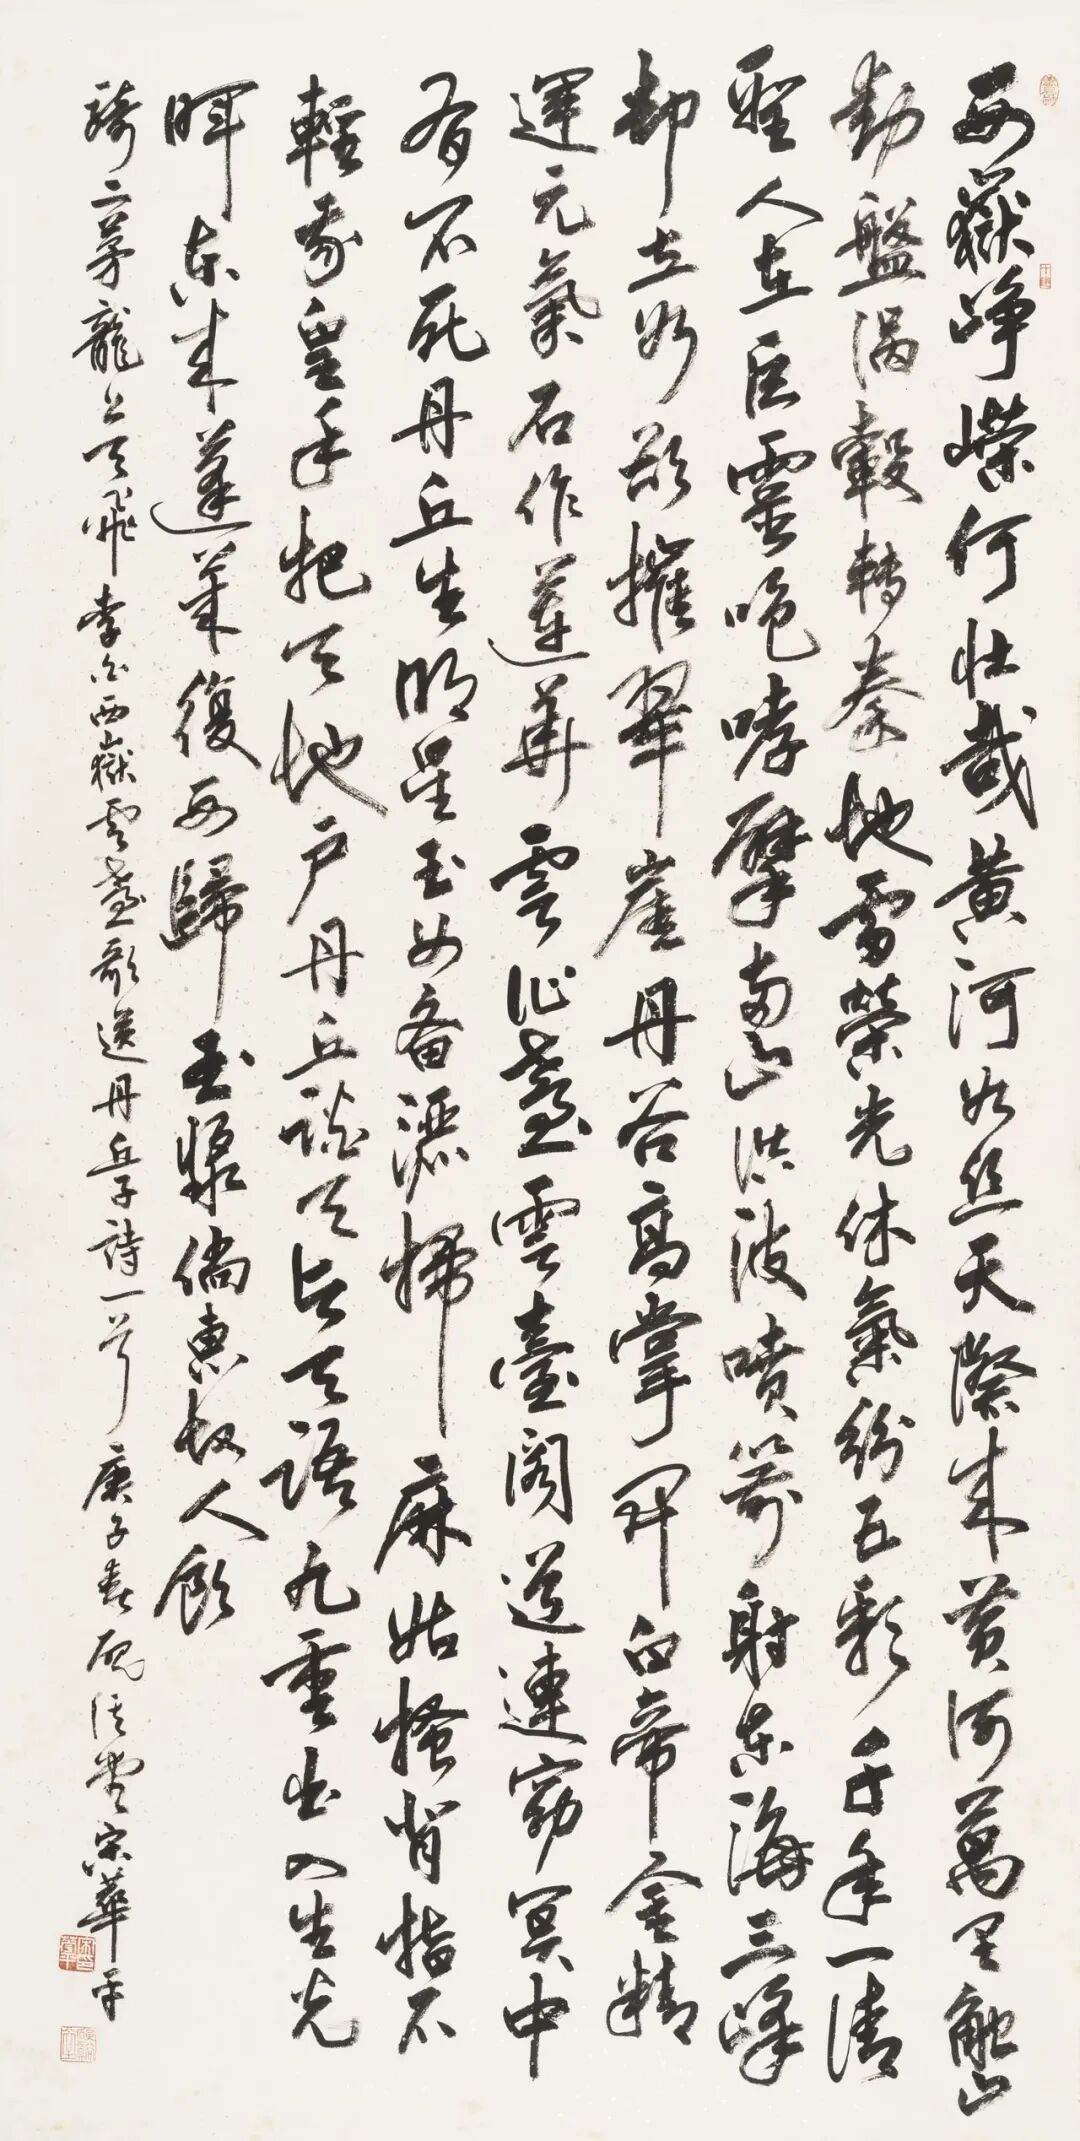 西嶽崢嶸何壯哉黃河如絲天際來黃河萬里觸山
動盤渦轂轉秦地雷榮光休氣紛五彩千年一清
聖人在巨靈咆哮擘兩山洪波噴箭射東海三峰
却立如欲摧翠崖丹谷高掌開白帝金精
運元氣石作蓮華雲作臺雲臺閣道連窈冥中
有不死丹丘生明星玉女備灑掃麻姑搔背指爪
輕我皇手把天地戶丹丘談天與天語九重出入生光
暉東來蓬萊復西歸玉漿倘惠故人飲
騎二茅龍上天飛李白西嶽雲臺歌送丹丘子詩一首庚子春宋華平